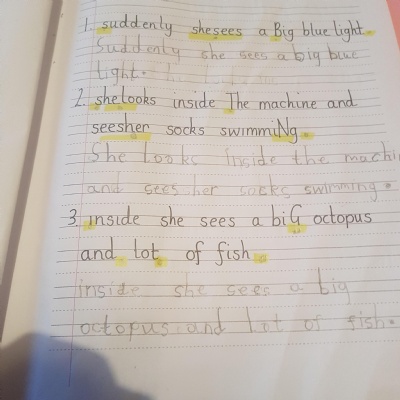 1. suddenly shesees a Big blue light.
Suddenly she sees a big blue
light.
2. shelooks inside The machine and
seesher socks swimmiNg.
She looks inside the machi
and sees her socks swimming.
3 inside she sees a biG octopus
and lot of fish.
inside she sees a big
octopus and lot of fish.